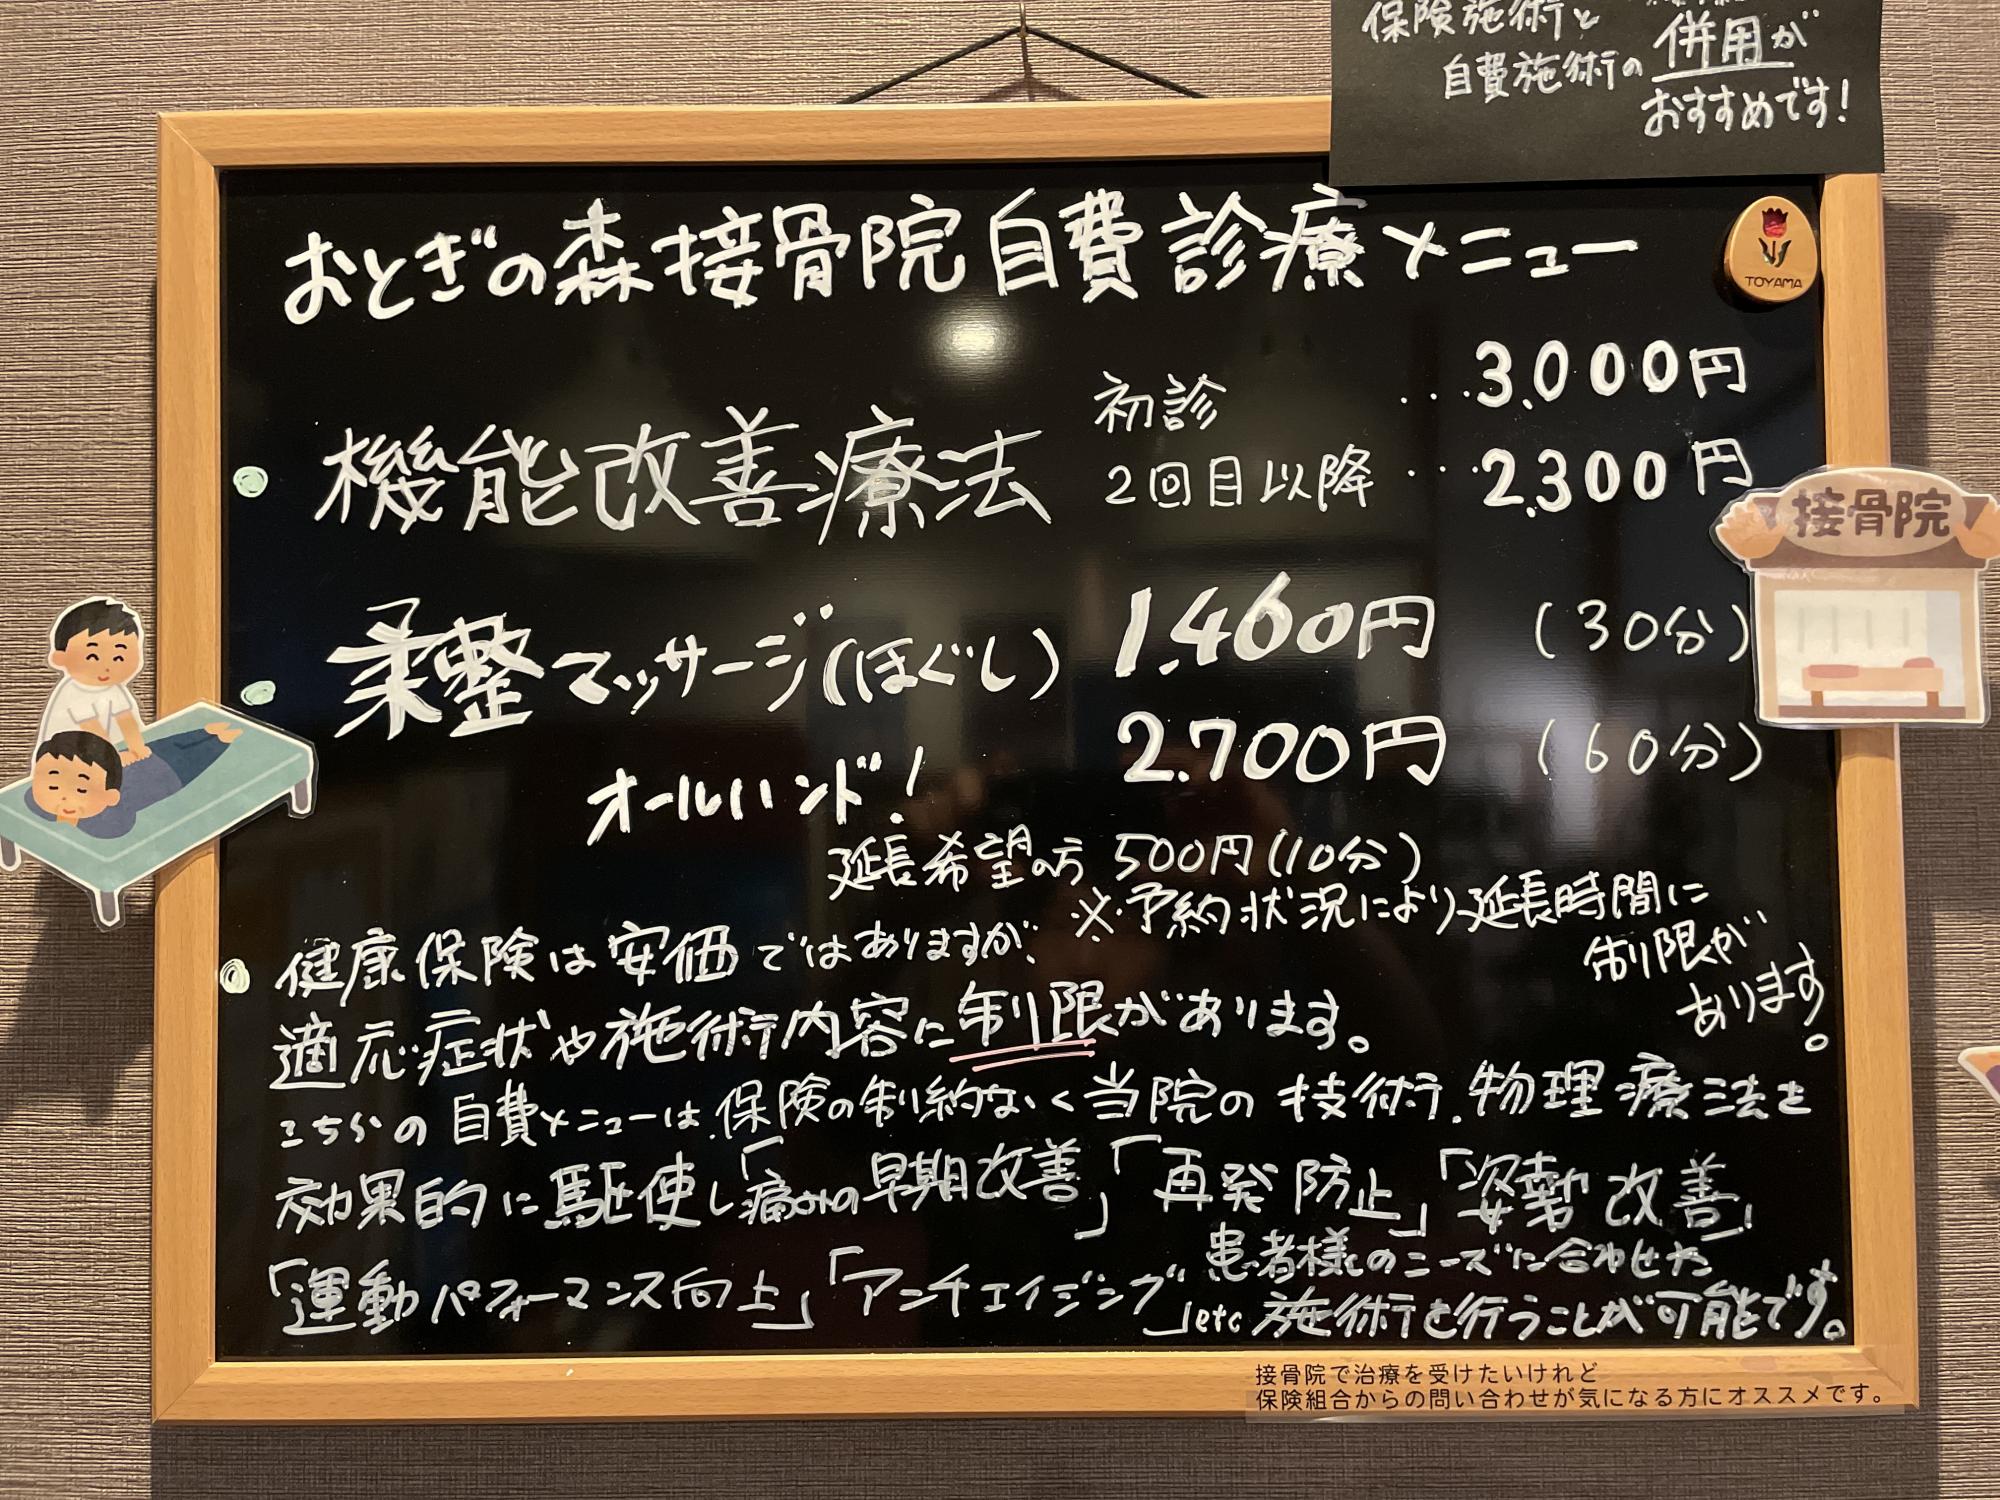 保険施術と
自費施術の併用が
おすすめです!
おとぎの森接骨院自費診療メニュー
TOYAMA
機能改善療法
初診 ・・・3,000円
2回目以降 ・・・2,300円
接骨院
柔整マッサージ(ほぐし) 1,460円 (30分)
2,700円 (60分)
オールハンド!
延長希望の方 500円(10分)
※予約状況により延長時間に
制限が
あります。
健康保険は安価ではありますが、
適応症状や施術内容に制限があります。
こちらの自費メニューは、保険の制約なく当院の技術、物理療法を
効果的に駆使し「痛みの早期改善」「再発防止」「姿勢改善」
「運動パフォーマンス向上」「アンチエイジング」etc
患者様のニーズに合わせた
施術を行うことが可能です。
接骨院で治療を受けたいけれど
保険組合からの問い合わせが気になる方にオススメです。